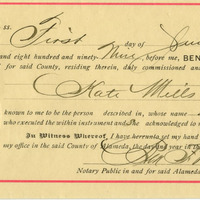 ss.
First day of
and eight hundred and ninety-Nine, before me, BEN
for said County, residing therein, duly commissioned and
Kate Mills
known to me to be the person described in, whose name
who executed the within instrument and She acknowledged to m
In Witness Whereof, I have hereunto set my hand
my office in the said County of Alameda, the day and year in th
Notary Public in and for said Alameda